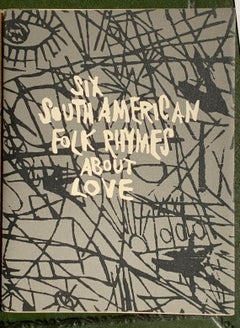 SIX
SOUTH AMERICAN
FOLK RHYMES
ABOUT
LOVE